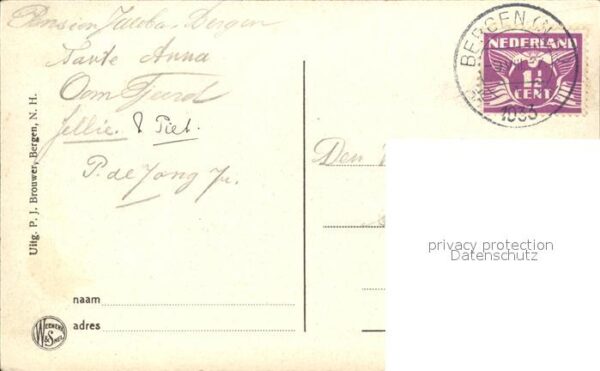 Pension Jacoba Bergen
Tante Anna
Oom Tjeerd
Jellie & Piet.
P. de Jong Jr.
Uitg. P. J. Brouwer, Bergen, N. H.
naam
adres
WEENENK & SNEL
BERGEN (N
1933
NEDERLAND
1½
CENT
Den
privacy protection
Datenschutz